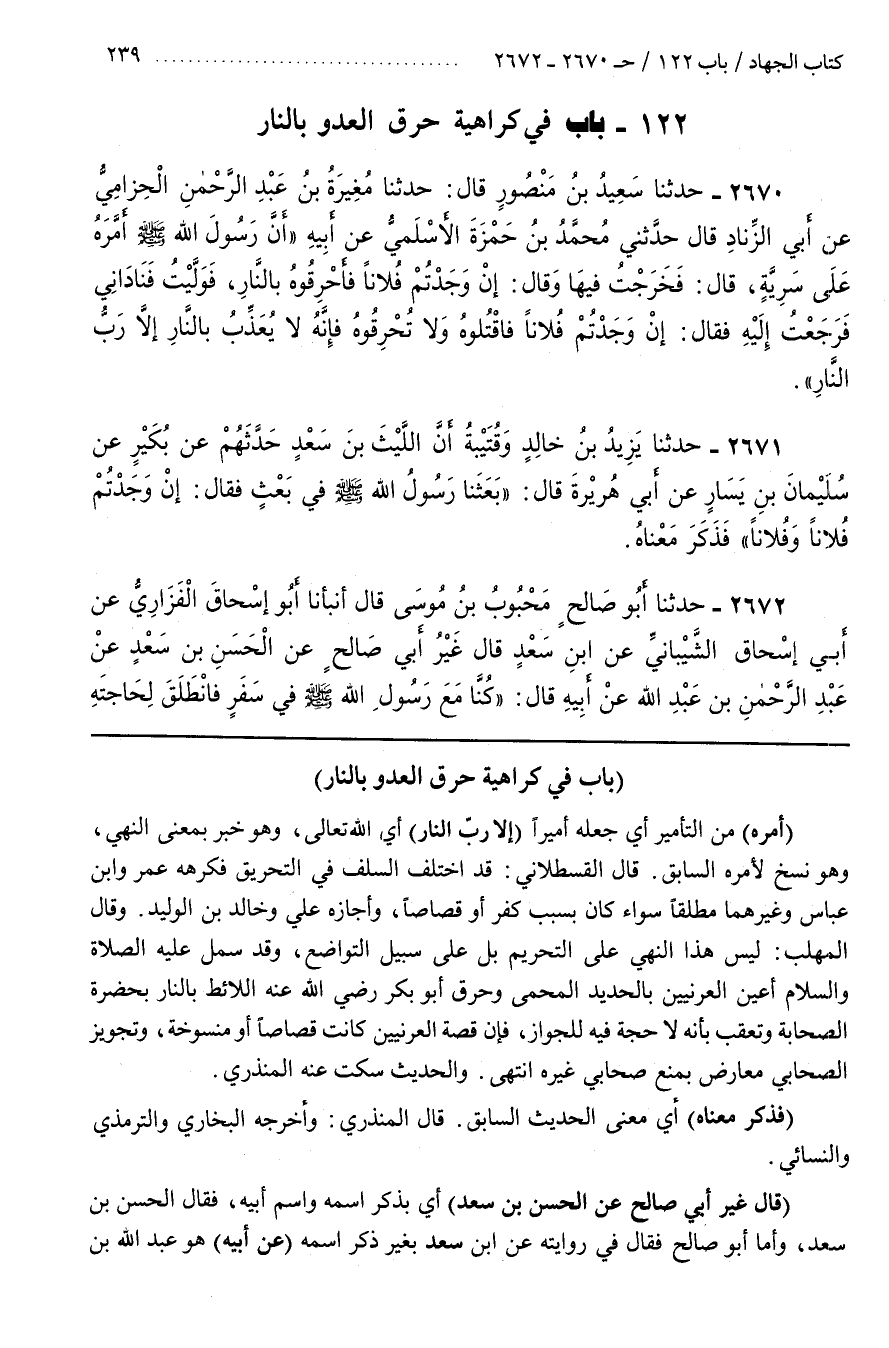 كتاب الجهاد / باب ١٢٢ / حـ ٢٦٧٠ ـ ٢٦٧٢ .................................... ٢٣٩
١٢٢ ـ باب في كراهية حرق العدو بالنار
٢٦٧٠ ـ حدثنا سَعِيدُ بنُ مَنْصُورٍ قال: حدثنا مُغِيرَةُ بنُ عَبْدِ الرَّحْمٰنِ الْحِزامِيُّ
عن أَبي الزِّنادِ قال حدَّثني مُحمَّدُ بنُ حَمْزَةَ الأَسْلَميُّ عن أَبِيهِ «أَنَّ رَسُولَ الله ﷺ أَمَّرَهُ
عَلَى سَرِيَّةٍ، قال: فَخَرَجْتُ فيهَا وَقال: إنْ وَجَدْتُمْ فُلاناً فأَحْرِقُوهُ بالنَّارِ، فَوَلَّيْتُ فَنَادَانِي
فَرَجَعْتُ إِلَيْهِ فقال: إنْ وَجَدْتُمْ فُلاناً فاقْتُلوهُ وَلا تُحْرِقُوهُ فإنَّهُ لا يُعَذِّبُ بالنَّارِ إلَّا رَبُّ
النَّارِ».
٢٦٧١ ـ حدثنا يَزِيدُ بنُ خالِدٍ وَقُتَيْبةُ أَنَّ اللَّيْثَ بنَ سَعَدٍ حَدَّثَهُمْ عن بُكَيْرٍ عن
سُلَيْمانَ بنِ يَسَارٍ عن أَبي هُريْرةَ قال: «بَعَثَنا رَسُولُ الله ﷺ في بَعْثٍ فقال: إنْ وَجَدْتُمْ
فُلاناً وَفُلاناً» فَذَكَرَ مَعْناهُ.
٢٦٧٢ ـ حدثنا أَبُو صَالحٍ مَحْبُوبُ بنُ مُوسَى قال أنبأنا أَبُو إسْحاقَ الْفَزَارِيُّ عن
أَبـي إسْحاق الشَّيْبانيِّ عن ابنِ سَعْدٍ قال غَيْرُ أَبي صَالحٍ عن الْحَسَنِ بن سَعْدٍ عنْ
عَبْدِ الرَّحْمٰنِ بن عَبْدِ الله عنْ أَبِيهِ قال: «كُنَّا مَعَ رَسُولِ الله ﷺ في سَفَرٍ فانْطَلَقَ لِحَاجتَهِ
(باب في كراهية حرق العدو بالنار)
(أمره) من التأمير أي جعله أميراً (إلا ربّ النار) أي الله تعالى، وهو خبر بمعنى النهي،
وهو نسخ لأمره السابق. قال القسطلاني: قد اختلف السلف في التحريق فكرهه عمر وابن
عباس وغيرهما مطلقاً سواء كان بسبب كفر أو قصاصاً، وأجازه علي وخالد بن الوليد. وقال
المهلب: ليس هذا النهي على التحريم بل على سبيل التواضع، وقد سمل عليه الصلاة
والسلام أعين العرنيين بالحديد المحمى وحرق أبو بكر رضي الله عنه اللائط بالنار بحضرة
الصحابة وتعقب بأنه لا حجة فيه للجواز، فإن قصة العرنيين كانت قصاصاً أو منسوخة، وتجويز
الصحابي معارض بمنع صحابي غيره انتهى. والحديث سكت عنه المنذري.
(فذكر معناه) أي معنى الحديث السابق. قال المنذري: وأخرجه البخاري والترمذي
والنسائي.
(قال غير أبي صالح عن الحسن بن سعد) أي بذكر اسمه واسم أبيه، فقال الحسن بن
سعد، وأما أبو صالح فقال في روايته عن ابن سعد بغير ذكر اسمه (عن أبيه) هو عبد الله بن